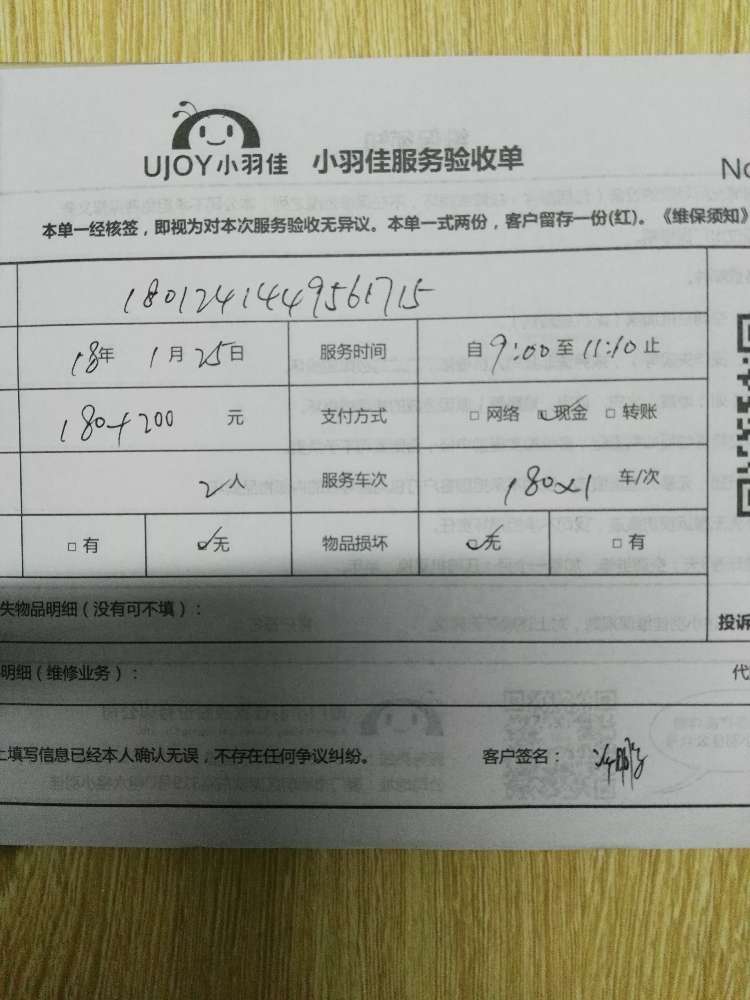 UJOY小羽佳 小羽佳服务验收单
No
本单一经核签，即视为对本次服务验收无异议。本单一式两份，客户留存一份(红)。《维保须知》
1801241449561715
18年 1月25日 服务时间 自9:00至11:10止
180+200 元 支付方式 □网络 ☑现金 □转账
2人 服务车次 180×1 车/次
□有 ☑无 物品损坏 ☑无 □有
失物品明细（没有可不填）：
投诉
明细（维修业务）：
代
上填写信息已经本人确认无误，不存在任何争议纠纷。 客户签名：